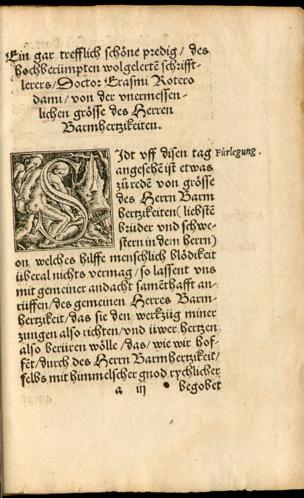 Ein gar trefflich schöne predig / des
hochberümpten wolgelertē schrifft-
lerers / Doctor Erasmi Rotero
dami / von der vnermessen-
lichen grösse des Herren
Barmhertzikeiten.
SIdt vff disen tag
Fürlegung.
angesehē ist etwas
zů redē von grösse
des Herrn Barm
hertzikeitē ( liebstē
brüder vnd schwe-
stern in dem herrn)
on welches hilffe menschlich blödikeit
überal nichts vermag / so lassent vns
mit gemeiner andacht samēthafft an-
rüffen / des gemeinen Herres Barm-
hertzikeit / das sie den werckzüg miner
zungen also richten / vnd üwer hertzen
also berüren wölle / das / wie wir hof-
fēt / durch des Herrn Barmhertzikeit /
selbs mit himmelscher gnod rychlicher
a iij
begobet